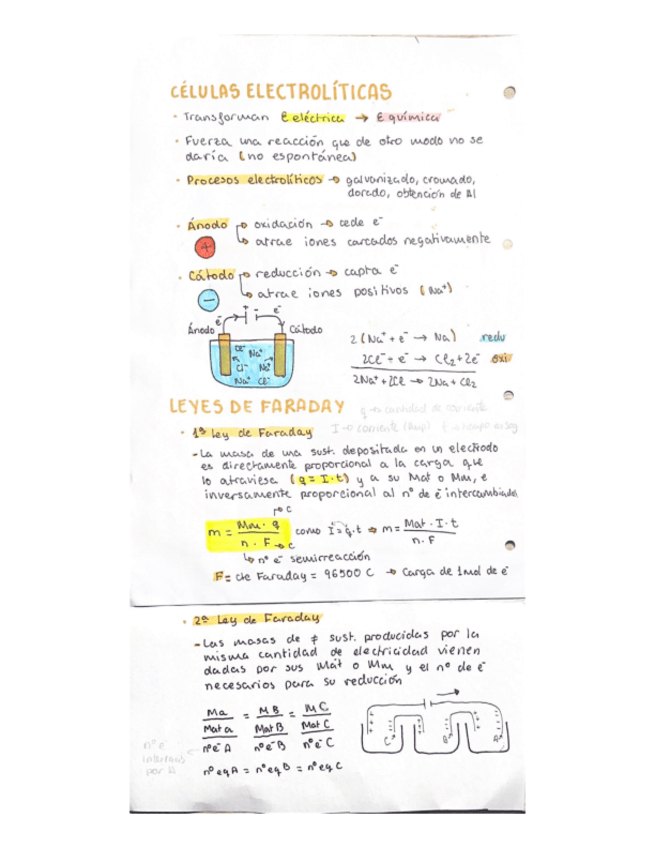 CÉLULAS ELECTROLÍTICAS
· Transforman E eléctrica → E química
· Fuerza una reacción que de otro modo no se
daría (no espontánea)
· Procesos electrolíticos → galvanizado, cromado,
dorado, obtención de Al
· Ánodo → oxidación → cede e⁻
+ → atrae iones cargados negativamente
· Cátodo → reducción → capta e⁻
− → atrae iones positivos (Na⁺)
e⁻ + e⁻
Ánodo Cátodo
Cl⁻ Na⁺
Cl⁻ Na⁺
Na⁺ Cl⁻
2(Na⁺ + e⁻ → Na) redu
2Cl⁻ + e⁻ → Cl₂ + 2e⁻ oxi
2Na⁺ + 2Cl → 2Na + Cl₂
LEYES DE FARADAY
q → cantidad de corriente
I → corriente (Amp) t → tiempo en seg
· 1ª ley de Faraday
- La masa de una sust. depositada en un electrodo
es directamente proporcional a la carga que
lo atraviesa (q = I·t) y a su Mat o Mm, e
inversamente proporcional al nº de e⁻ intercambiados
→ C
m = Mm · q / n · F como I = q·t → m = Mat · I · t / n · F
→ C
↳ nº e⁻ semirreacción
F = cte Faraday = 96500 C → Carga de 1 mol de e⁻
· 2ª Ley de Faraday
- Las masas de ≠ sust. producidas por la
misma cantidad de electricidad vienen
dadas por sus Mat o Mm y el nº de e⁻
necesarios para su reducción
Ma = MB = MC
Mat a Mat B Mat C
nº e⁻ A nº e⁻ B nº e⁻ C
C B A
nº e⁻
por A
nº eq A = nº eq B = nº eq C